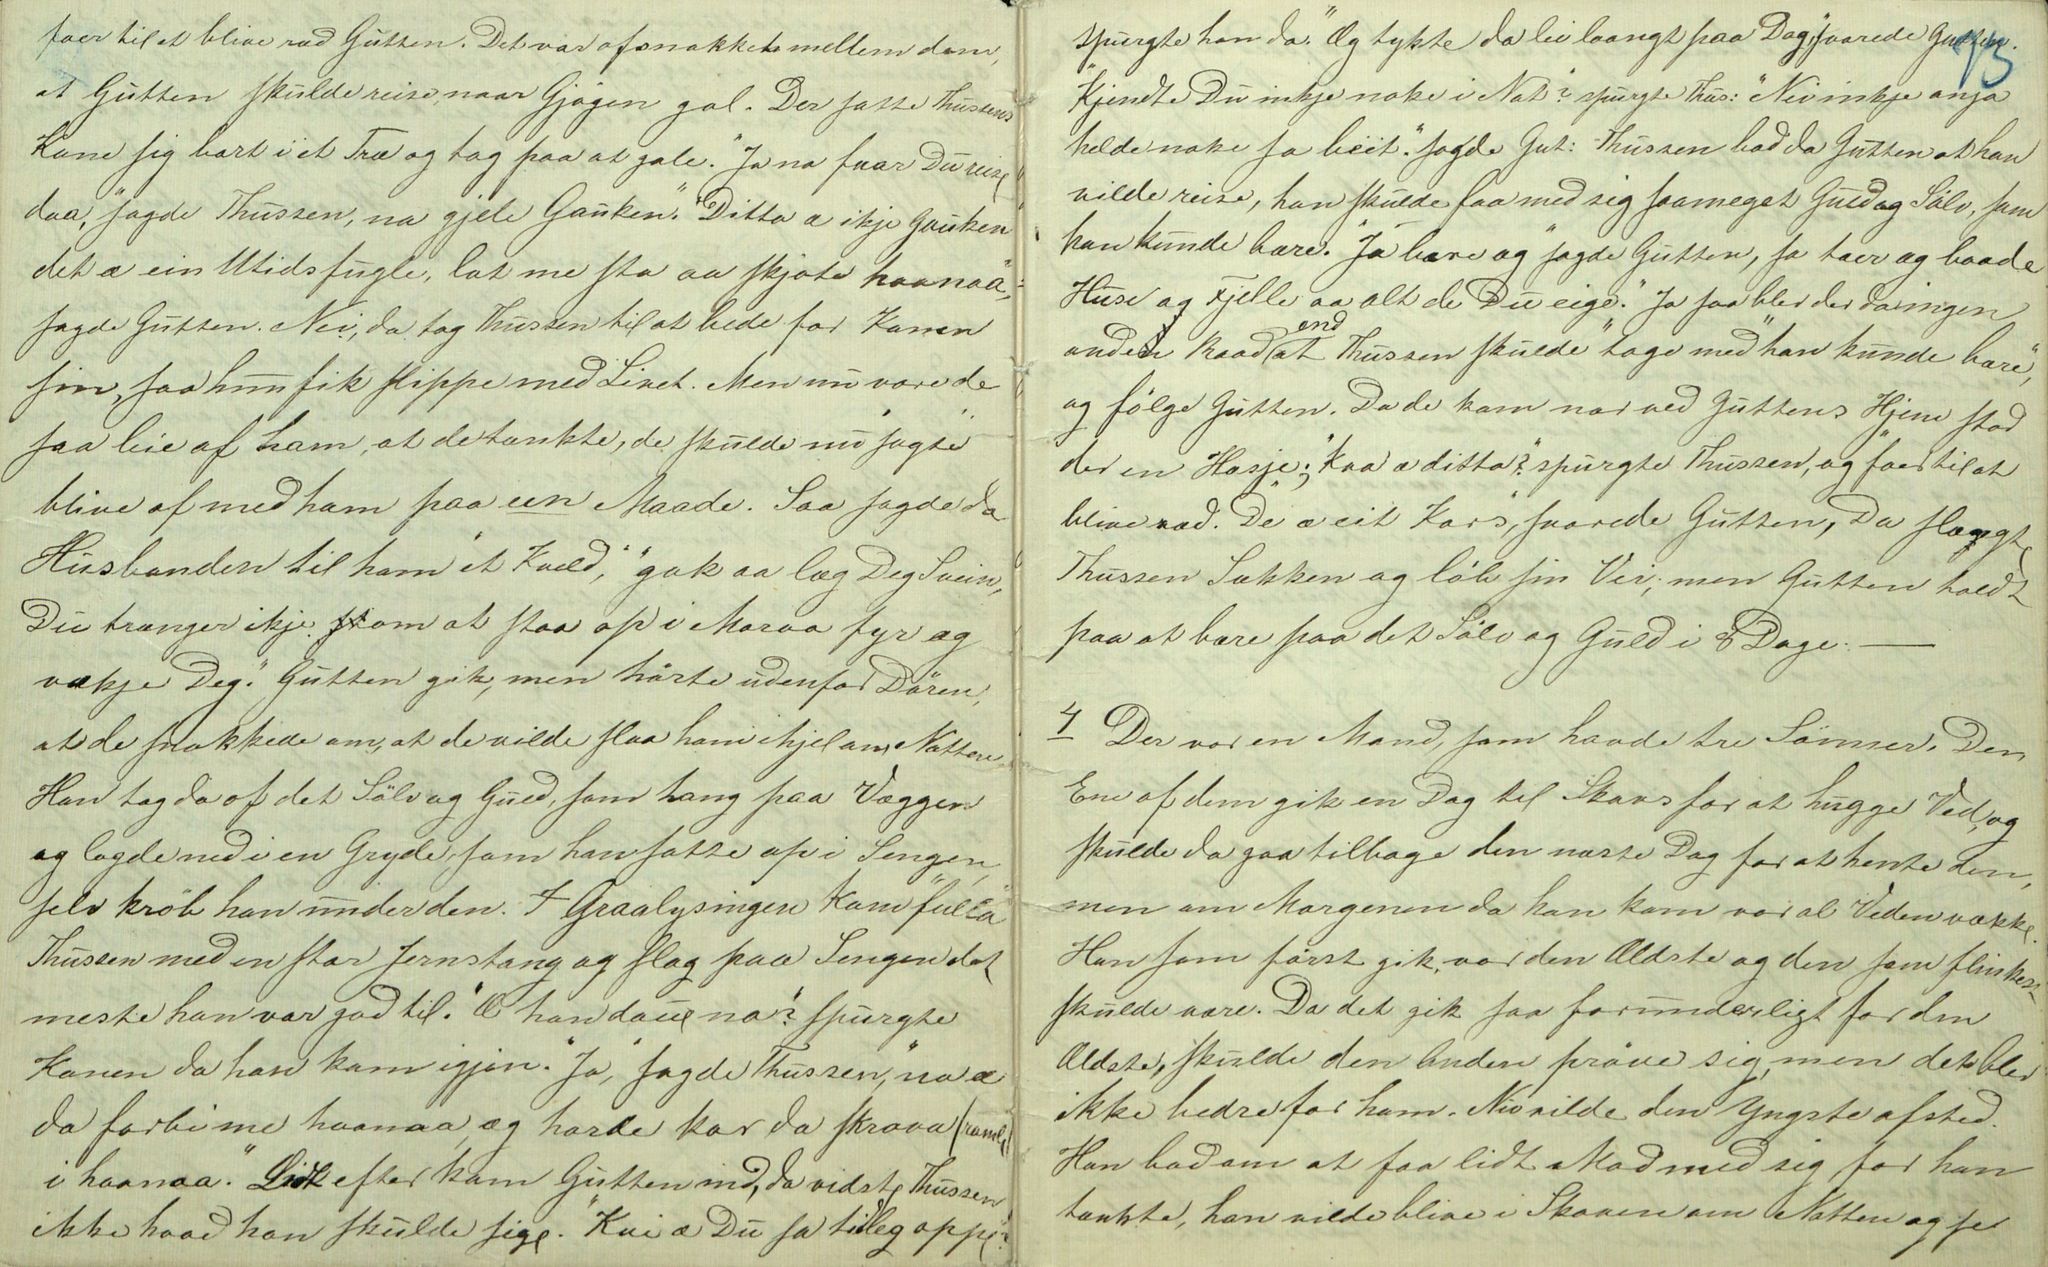 foer til at blive ræd Gutten. Det var afsnakket mellem dem,
at Gutten skulde reise, naar Gjögen gol. Der satte Thussens
Kone sig bort i et Træ og tog paa at gale. "Ja no faar Du reise
daa," sagde Thussen, "no gjele Gauken". "Ditta æ ikje Gauken
det æ ein Utidsfugle, lat me sta aa skjote haanaa",
sagde Gutten. Nei, da tog Thussen til at bede for Konen
sin, saa hun fik slippe med Livet. Men nu vare de
saa leie af ham, at de tænkte, de skulde nu "sagte"
blive af med ham paa een Maade. Saa sagde da
Husbonden til ham et Kveld, "gak aa læg Deg Svein,
Du trænger ikje om at staa op i Moraa fyr æg
vækje Deg." Gutten gik, men hörte udenfor Dören,
at de snakkede om, at de vilde slaa ham ihjel om Natten.
Han tog da af det Sölv og Guld, som hang paa Væggen
og lagde ned i en Gryde, som han satte op i Sengen,
selv kröb han under den. I Graalysingen kom "fulla"
Thussen med en stor Jernstang og slog paa Sengen det
meste han var god til. "Æ han daue no"? spurgte
Konen da han kom igjen. "Ja," sagde Thussen, "no æ
da forbi me haanaa, æg horde kor da skrava (ramle)
i haanaa." Lidt efter kom Gutten ind, da vidste Thussen
ikke hvad han skulde sige. "Kvi æ Du so tidleg oppe?"
spurgte han da. "Æg tykte da lei laangt paa Dag," svarede Gutten.
73
"Kjendte Du inkje noke i Nat"? spurgte Thus: "Nei inkje anja
helde noke so beit." sagde Gut: Thussen bad da Gutten at han
vilde reise, han skulde faa med sig saameget Guld og Sölv, som
han kunde bære. "Ja bære æg" sagde Gutten, "so tæer æg baade
Huse og Fjelle aa alt de Du eige." Ja saa blev der da ingen
anden Raad end at Thussen skulde "tage med han kunde bære",
og fölge Gutten. Da de kom nær ved Guttens Hjem stod
der en Hasje; "Kva æ ditta"? spurgte Thussen, og foer til at
blive ræd. "De æ eit Kors", svarede Gutten, Da slængte
Thussen Sækken og löb sin Vei; men Gutten holdt
paa at bære paa det Sölv og Guld i 8 Dage. —
4 Der var en Mand, som havde tre Sönner. Den
Ene af dem gik en Dag til Skovs for at hugge Ved, og
skulde da gaa tilbage den næste Dag for at hente den,
men om Morgenen da han kom var al Veden vække.
Han som först gik, var den Ældste og den som flinkest
skulde være. Da det gik saa forunderligt for den
Ældste, skulde den Anden pröve sig, men det blev
ikke bedre for ham. Nu vilde den Yngste afsted.
Han bad om at faa lidt Mad med sig for han
tænkte, han vilde blive i Skoven om Natten og se